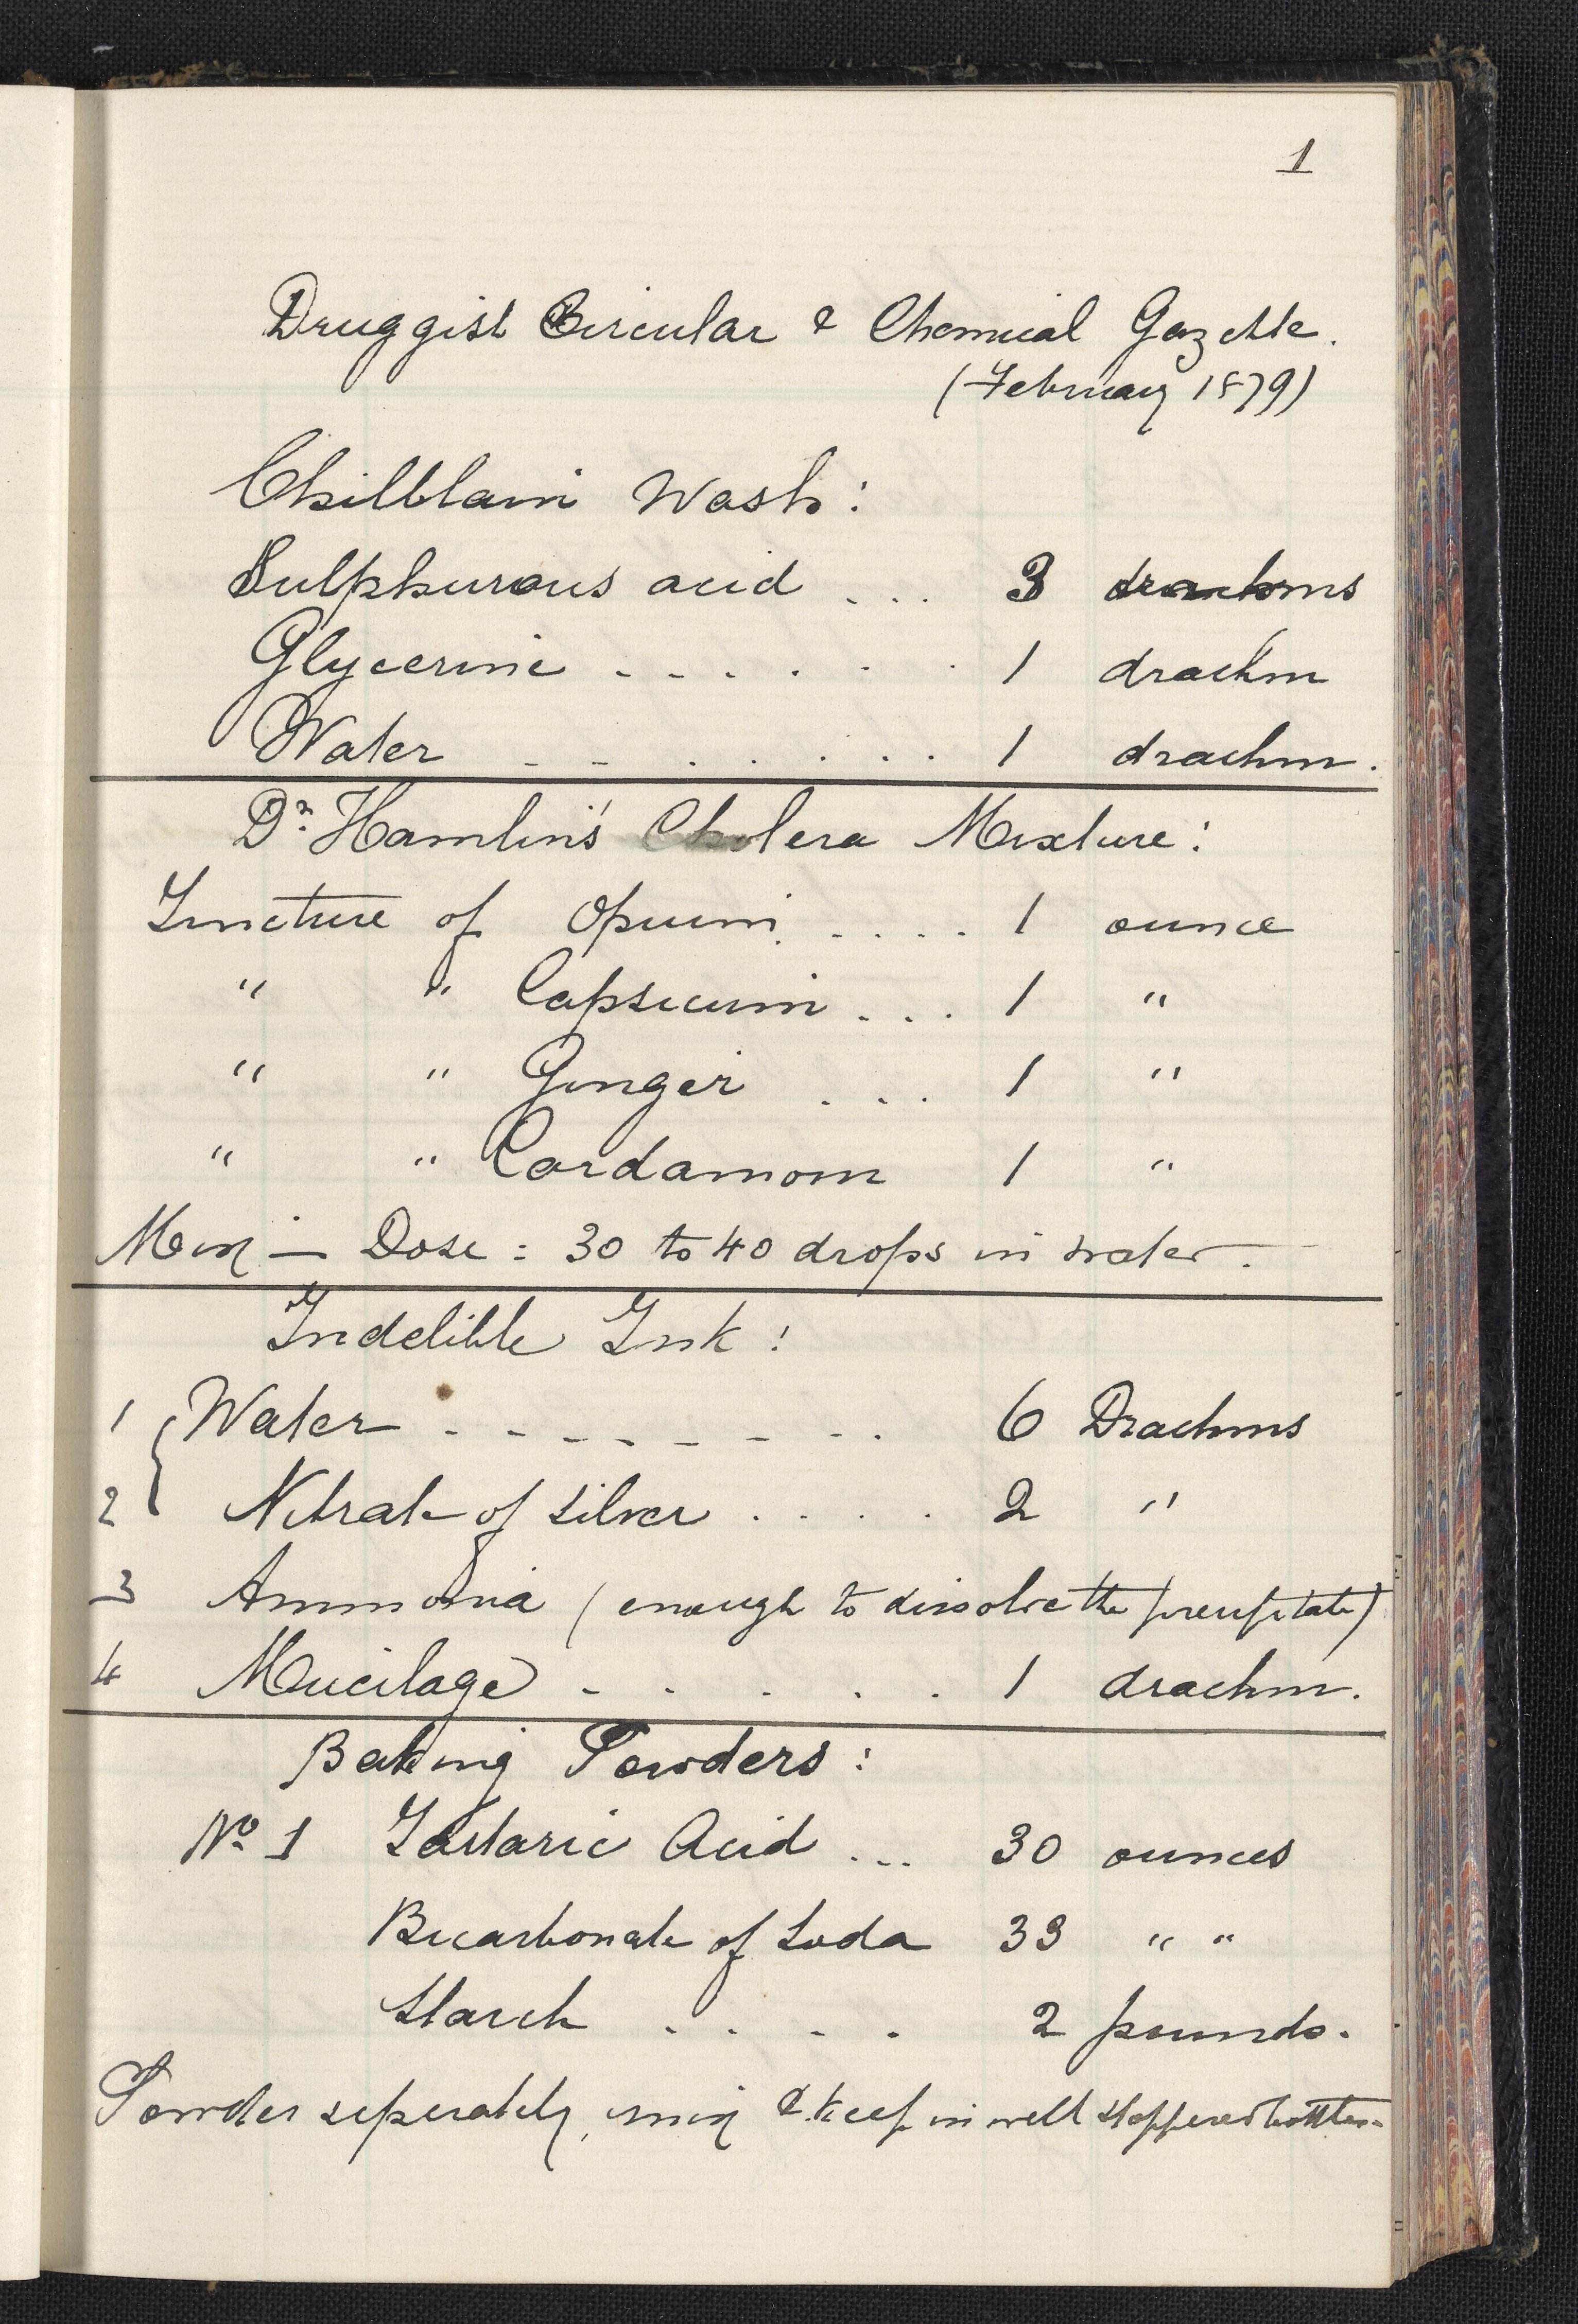 1
Druggist Circular & Chemical Gazette.
(February 1879)
Chilblain Wash:
Sulphurous acid ... 3 drachms
Glycerine - - - . . . 1 drachm
Water - - . . . . . . 1 drachm.
Dr. Hamlin's Cholera Mixture:
Tincture of Opium . . . . 1 ounce
" " Capsicum . . . 1 "
" " Ginger . . . 1 "
" " Cardamom 1 "
Mix — Dose: 30 to 40 drops in water.
Indelible Ink:
1 { Water - - - - - - - . . 6 Drachms
2 Nitrate of silver . . . . 2 "
3 Ammonia (enough to dissolve the precipitate)
4 Mucilage - . . . . 1 drachm.
Baking Powders:
No 1 Tartaric Acid ... 30 ounces
Bicarbonate of Soda 33 " "
Starch . . - . 2 pounds.
Powder seperately, mix & keep in well stoppered bottles.